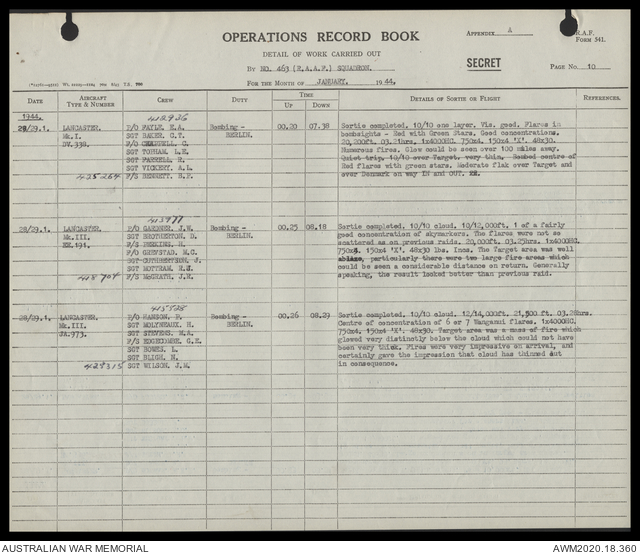 OPERATIONS RECORD BOOK
APPENDIX A
R.A.F. FORM 541.
DETAIL OF WORK CARRIED OUT
BY NO. 463 (R.A.A.F.) SQUADRON.
SECRET
PAGE NO. 10
FOR THE MONTH OF JANUARY, 1944.
DATE
AIRCRAFT TYPE & NUMBER
CREW
DUTY
TIME
UP
DOWN
DETAILS OF SORTIE OR FLIGHT
REFERENCES.
1944.
412936
28/29.1. LANCASTER. P/O FAYLE, E.A. Bombing - 00.20 07.38 Sortie completed, 10/10 one layer. Vis. good. Flares in
Mk.I. SGT BAKER, C.T. BERLIN. bombsights - Red with Green Stars. Good concentrations.
DV.338. F/O CHAPPELL, G. 20,200ft. 03.21hrs. 1x4000HC. 750x4. 150x4 'X'. 48x30.
SGT TOPHAM, L.E. Numerous fires. Glow could be seen over 100 miles away.
SGT FARRELL, R. Quiet trip. 10/10 over Target, very thin. Bombed centre of
SGT VICKERY, A.L. Red flares with green stars. Moderate flak over Target and
425264 F/S BENNETT, S.F. over Denmark on way IN and OUT.
413977
28/29.1. LANCASTER. P/O GARDNER, J.W. Bombing - 00.25 08.18 Sortie completed. 10/10 cloud. 10/12,000ft. 1 of a fairly
Mk.III. SGT BROTHERTON, D. BERLIN. good concentration of skymarkers. The flares were not so
EE.191. F/S PERKINS, H. scattered as on previous raids. 20,000ft. 03.25hrs. 1x4000HC.
F/O GREYSTAD, M.C. 750x4. 150x4 'X'. 48x30 lbs. Incs. The Target area was well
SGT CUTHBERTSON, J. ablaze, particularly there were two large fire areas which
SGT MOTTRAM, R. could be seen a considerable distance on return. Generally
418704 F/S McGRATH, J.K. speaking, the result looked better than previous raid.
415525
28/29.1. LANCASTER. F/O HANSON, P. Bombing - 00.26 08.29 Sortie completed. 10/10 cloud. 12/14,000 ft. 21,500 ft. 03.28hrs.
Mk.III. SGT MOLYNEAUX, H. BERLIN. Centre of concentration of 6 or 7 Wanganui flares. 1x4000HC.
JA.973. SGT STEVENS, H.A. 750x4. 150x4 'X'. 48x30. Target area was a mass of fire which
F/S EDGECOMBE, G.E. glowed very distinctly below the cloud which could not have
SGT BOWES, L. been very thick. Fires were very impressive on arrival, and
SGT BLIGH, N. certainly gave the impression that cloud has thinned out
423315 SGT WILSON, J.M. in consequence.
AUSTRALIAN WAR MEMORIAL
AWM2020.18.360